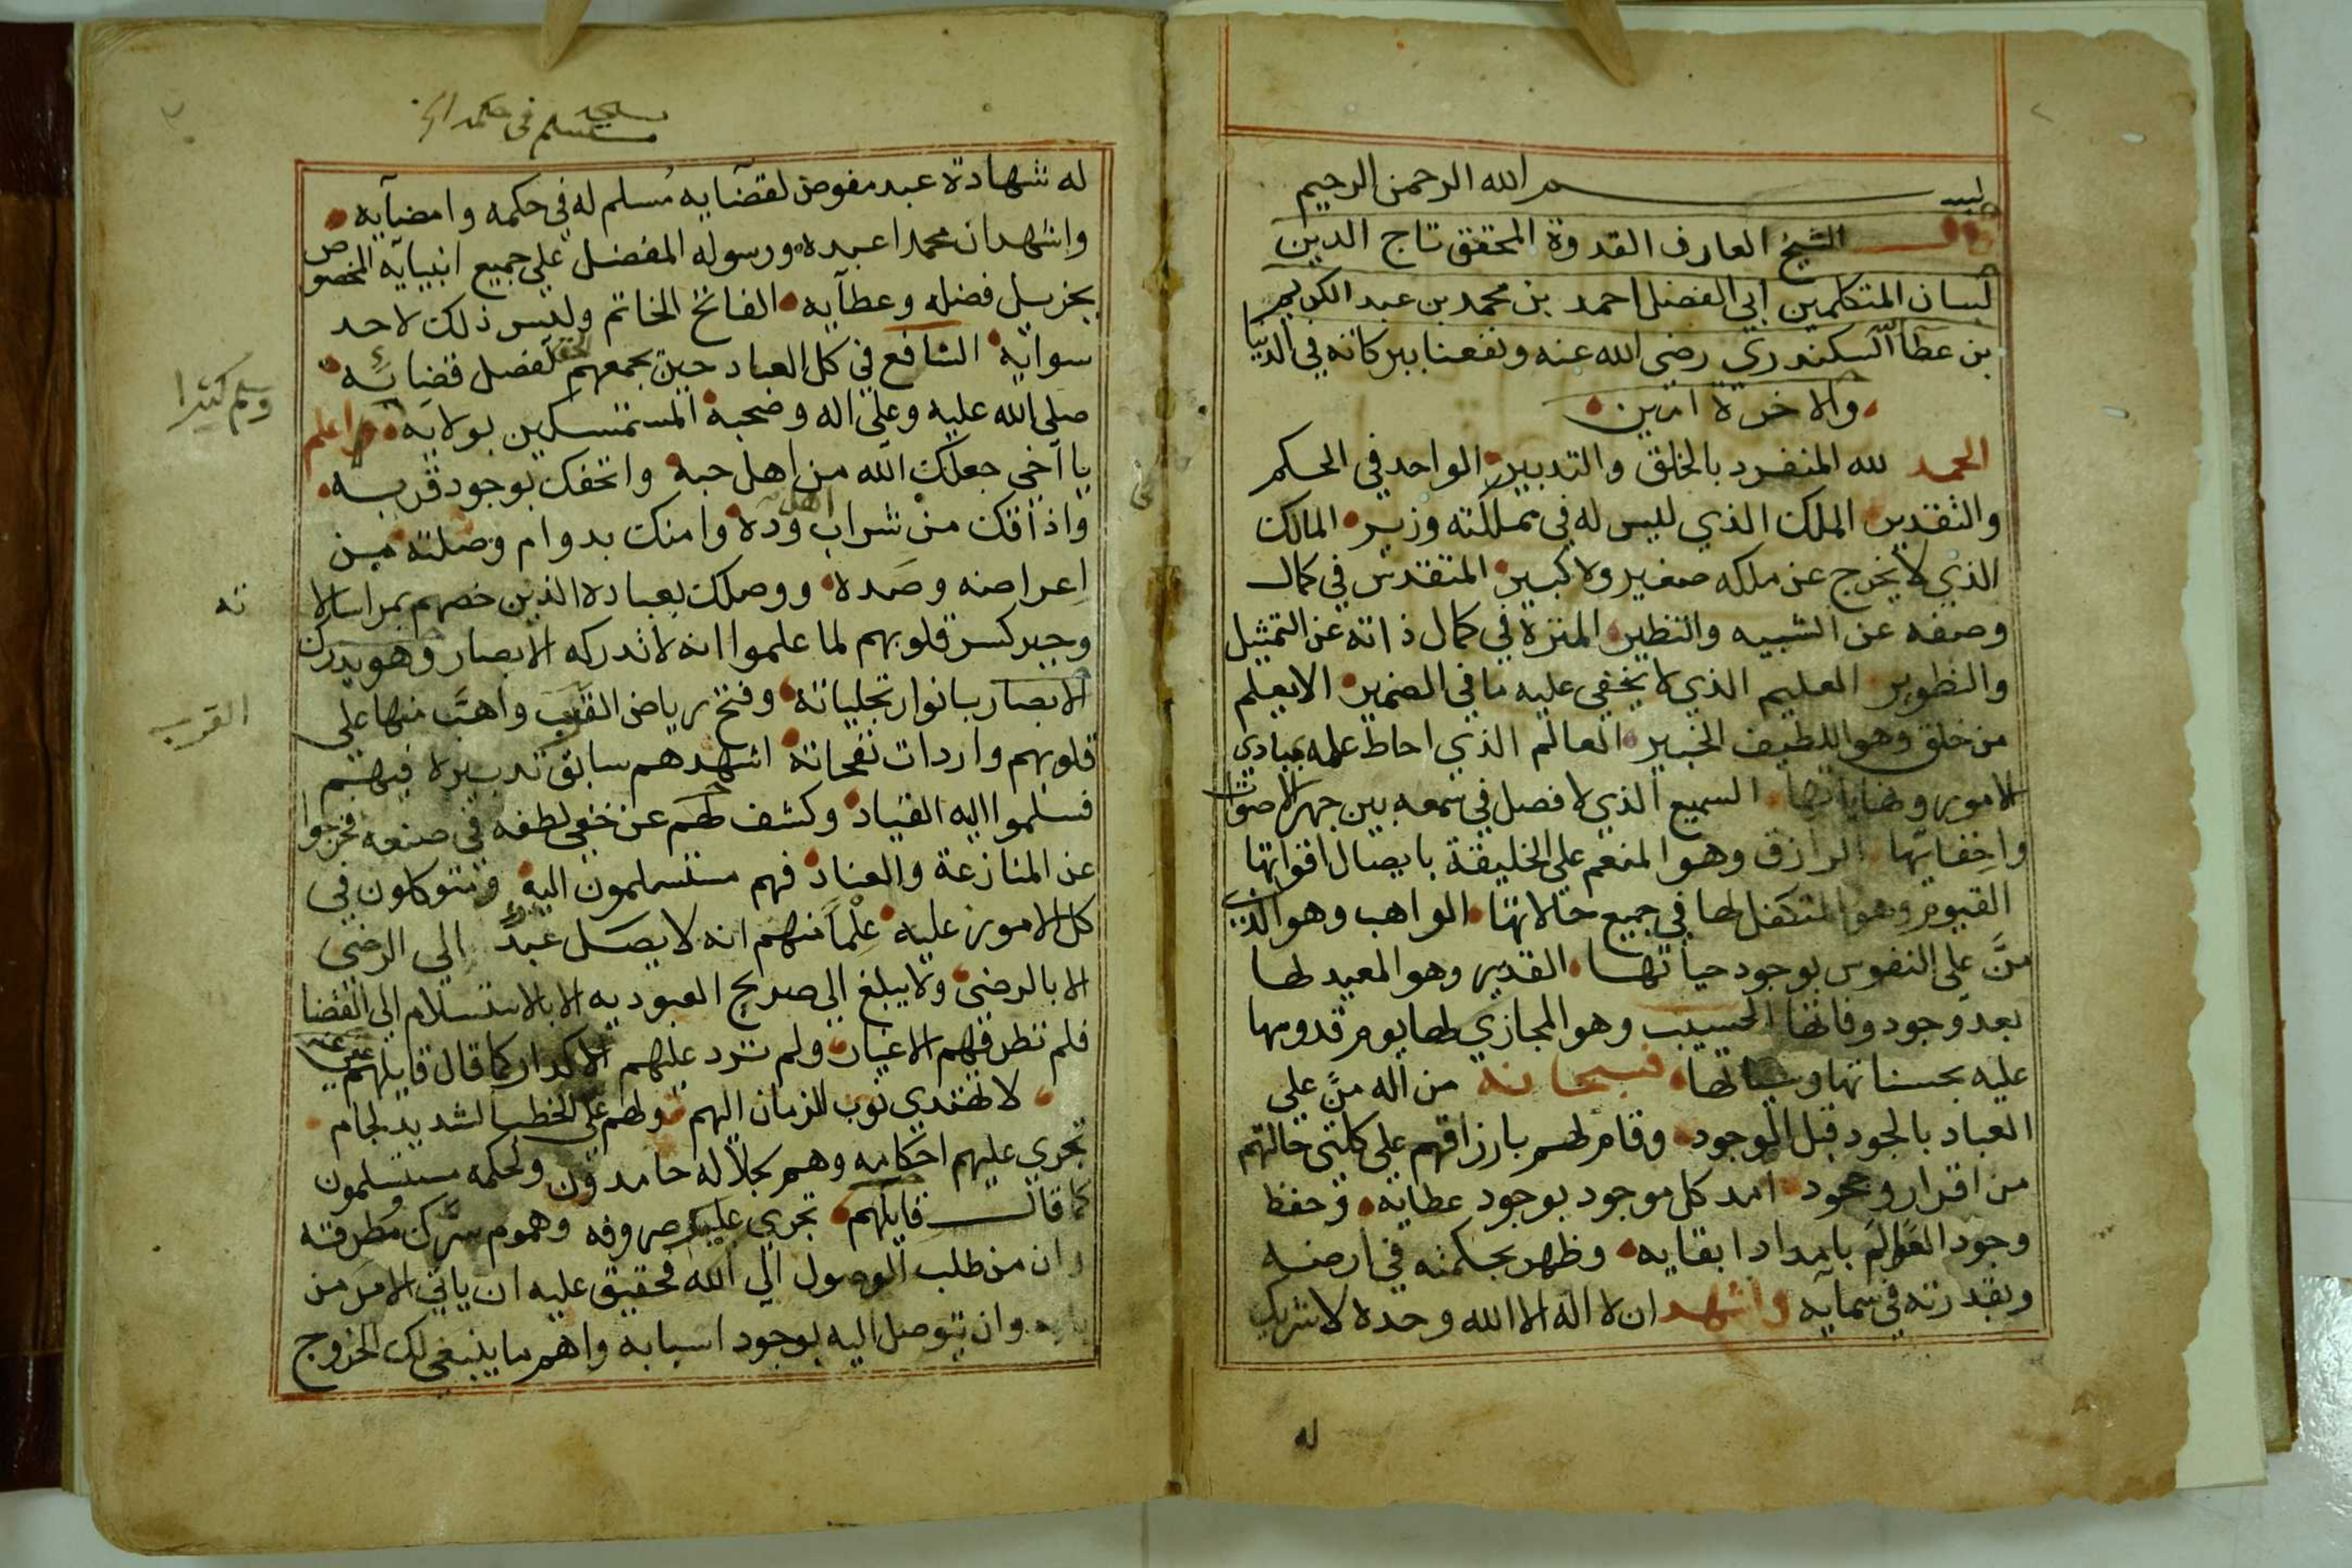 بسم الله الرحمن الرحيم
قال الشيخ العارف القدوة المحقق تاج الدين
لسان المتكلمين ابي الفضل احمد بن محمد بن عبد الكريم
بن عطا السكندري رضي الله عنه ونفعنا ببركاته في الدنيا
والاخرة امين
الحمد لله المنفرد بالخلق والتدبير الواحد في الحكم
والتقدير الملك الذي ليس له في مملكته وزير المالك
الذي لا يخرج عن ملكه صغير ولا كبير المتقدس في كمال
وصفه عن الشبيه والنظير المنزه في كمال ذاته عن التمثيل
والتطوير العليم الذي لا يخفي عليه ما في الضمير الا يعلم
من خلق وهو اللطيف الخبير العالم الذي احاط علمه بمبادي
الامور ونهاياتها السميع الذي لا فصل في سمعه بين جهر الاصوات
واخفائها الرازق وهو المنعم على الخليقة بايصال اقواتها
القيوم وهو المتكفل لها في جميع حالاتها الواهب وهو الذي
منَّ على النفوس بوجود حياتها القدير وهو المعيد لها
بعد وجود وفاتها الحسيب وهو المجازي لها يوم قدومها
عليه بحسناتها وسيئاتها فسبحانه من اله منَّ على
العباد بالجود قبل الوجود وقام لهم بارزاقهم على كلتي حالتهم
من اقرار وجحود امد كل موجود بوجود عطايه وحفظ
وجود العوالم بامداد ابقايه وظهر بحكمته في ارضه
وبقدرته في سمايه واشهد ان لا اله الا الله وحده لا شريك
له
مستسلم في حكمه
له شهادة عبد مفوض لقضايه مُسلم له في حكمه وامضايه
واشهد ان محمدا عبده ورسوله المفضل على جميع انبيايه المخصوص
بجزيل فضله وعطايه الفاتح الخاتم وليس ذلك لاحد
سوائه الشافع في كل العباد حين يجمعهم الحق لفصل قضائه
صلى الله عليه وعلى اله وصحبه المستمسكين بولايه واعلم
وسلم كثيرا
يا اخي جعلك الله من اهل حبه واتحفك بوجود قربه
واذاقك من شراب اهل وده وامنك بدوام وصلته من
اعراضه وصده ووصلك بعباده الذين خصهم بمراسالا
ته
وجبر كسر قلوبهم لما علموا انه لا تدركه الابصار وهو يدرك
الابصار بانوار تجلياته وفتح رياض القرب واهبَّ منها على
القرب
قلوبهم واردات نفحاته اشهدهم سابق تدبيره فيهم
فسلموا اليه القياد وكشف لهم عن خفي لطفه في صنعه فخرجوا
عن المنازعة والعناد فهم مستسلمون اليه ومتوكلون في
كل الامور عليه علماً منهم انه لا يصل عبدٌ الي الرضى
الا بالرضى ولا يبلغ الي صريح العبوديه الا بالاستسلام الى القضا
فلم تطرقهم الاغيار ولم ترد عليهم الاكدار كما قال قايلهم
لا تهتدي نوب الزمان اليهم ولهم على الخطب الشديد لجام
تجري عليهم احكامه وهم بجلاله حامدون ولحكمه مستسلمون
كما قال قايلهم تجري عليك صروفه وهموم سرك مطرقه
وان من طلب الوصول الي الله فحقيق عليه ان ياتي الامر من
بابه وان يتوصل اليه بوجود اسبابه واهم ما ينبغي لك الخروج